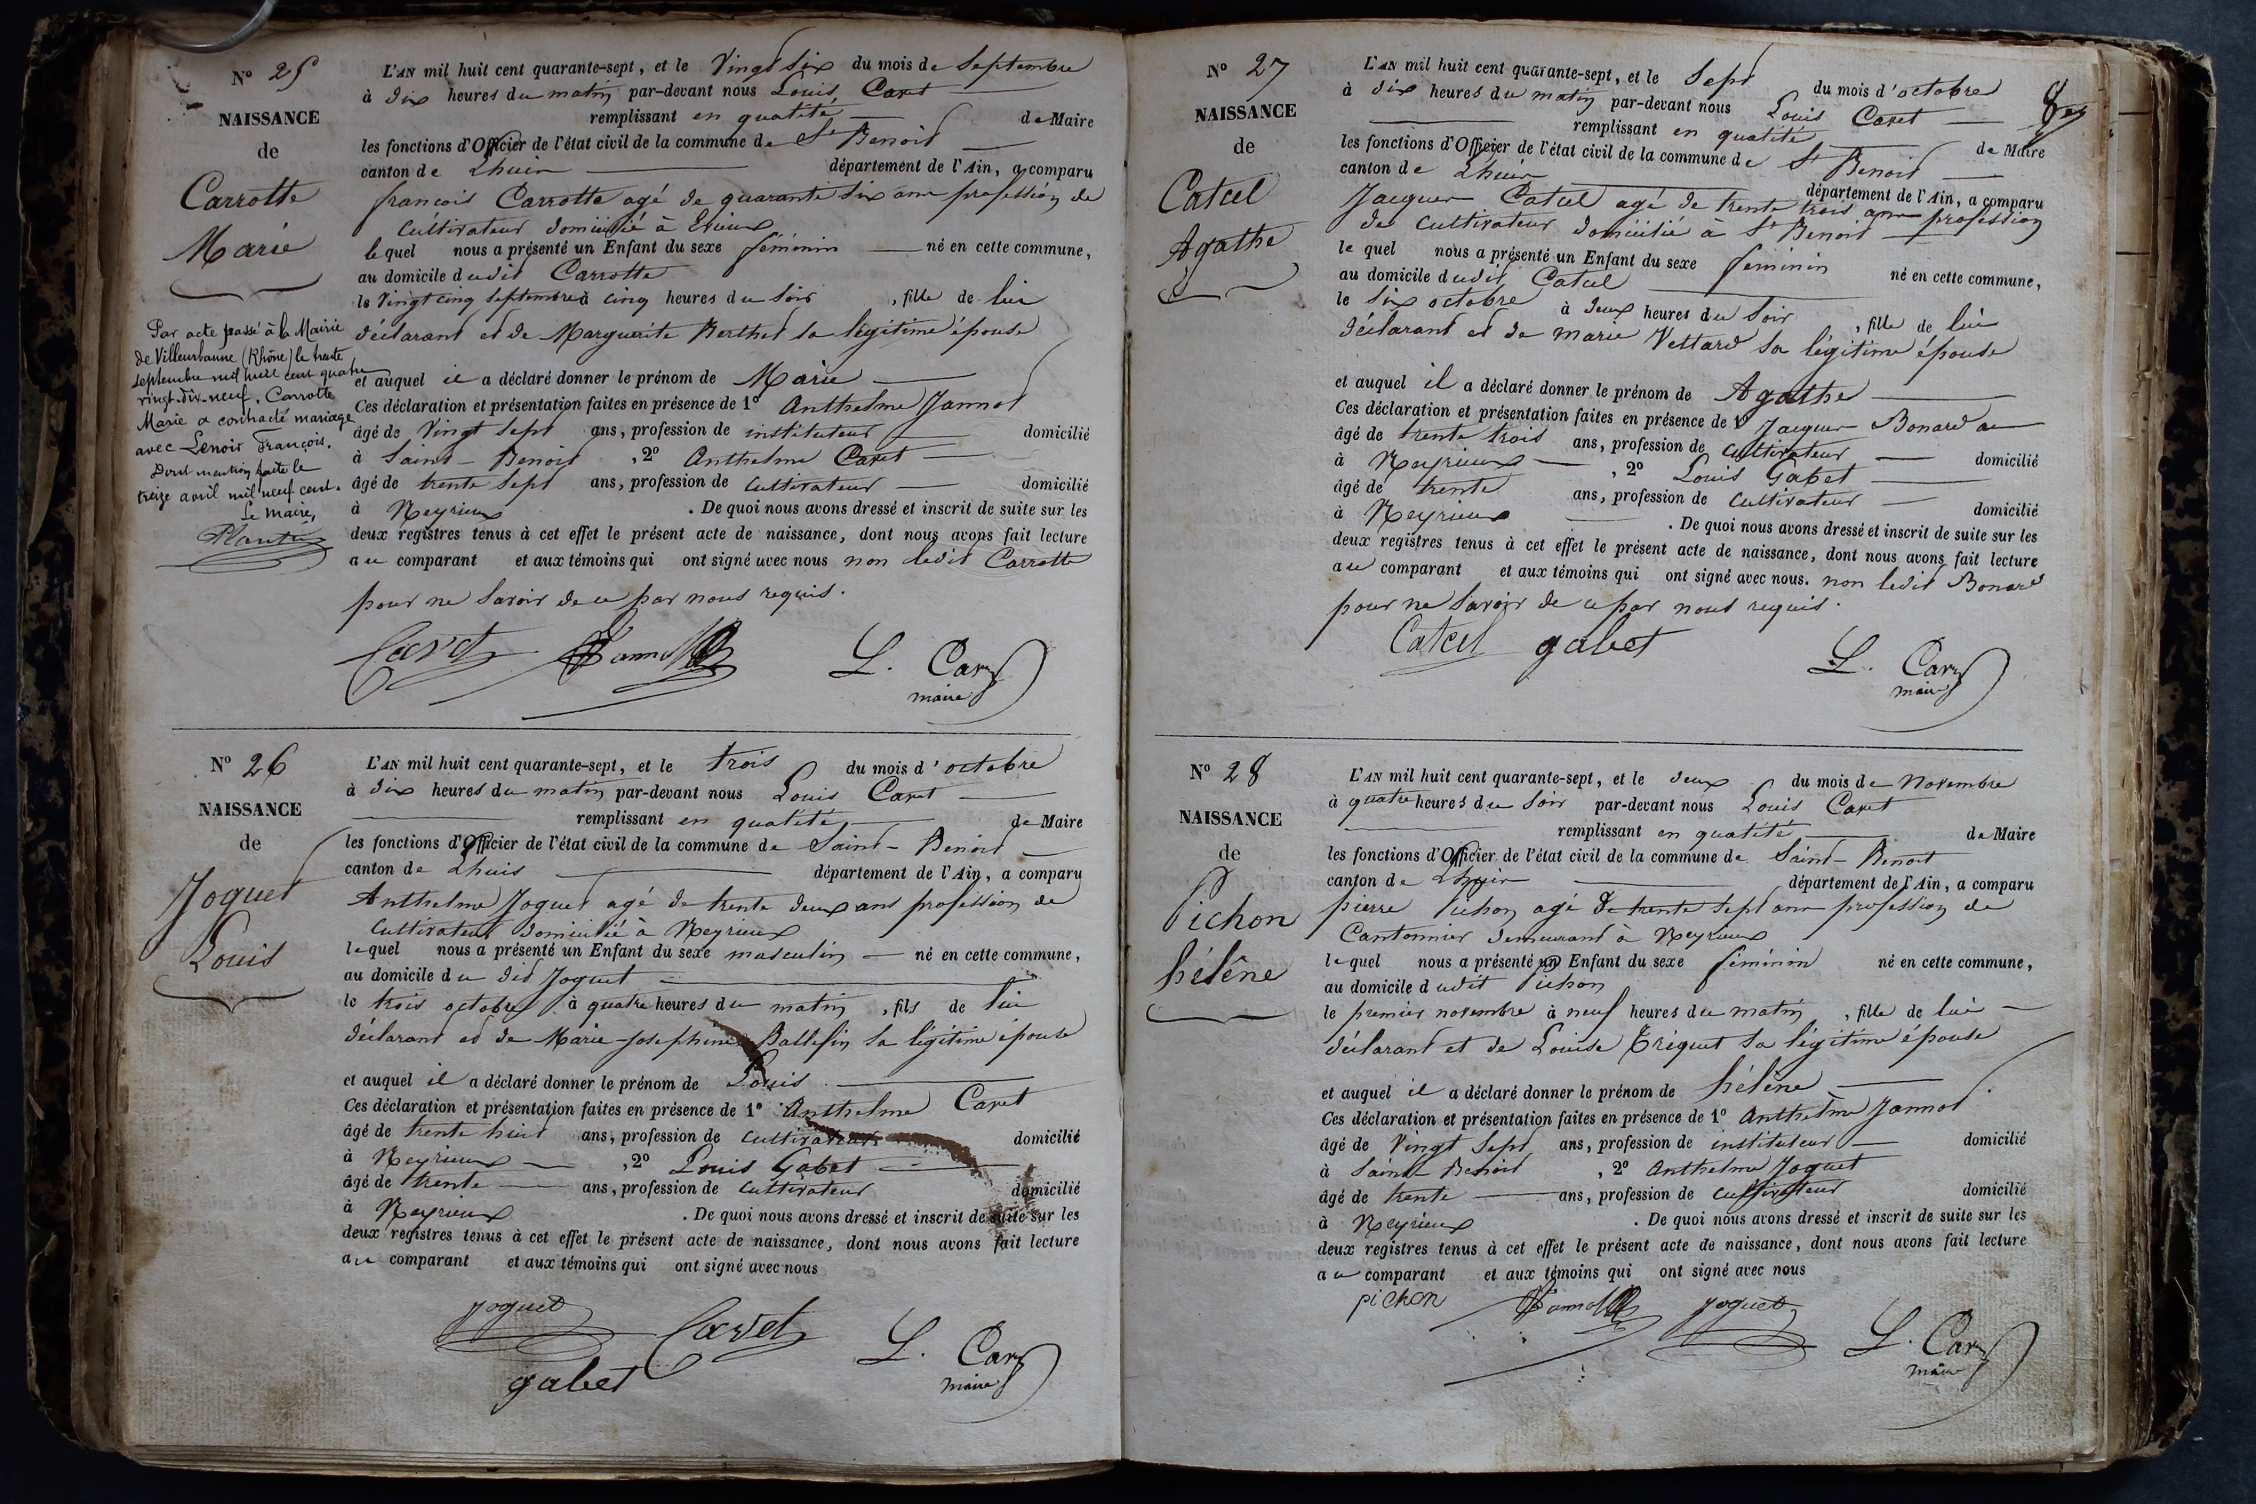 Nº 25
NAISSANCE
de
Carrotte
Marie
Par acte passé à la Mairie
de Villeurbanne (Rhône) le trente
septembre mil huit cent quatre
vingt-dix-neuf, Carrotte
Marie a contracté mariage
avec Lenoir François.
Dont mention faite le
treize avril mil neuf cent.
Le Maire,
L'AN mil huit cent quarante-sept, et le Vingt six du mois de Septembre
à dix heures du matin par-devant nous Louis Cavet
remplissant en qualité de Maire
les fonctions d'Officier de l'état civil de la commune de St Benoit
canton de Lhuis département de l'Ain, a comparu
françois Carrotte agé de quarante six ans profession de
Cultivateur domicilié à
lequel nous a présenté un Enfant du sexe féminin né en cette commune,
au domicile dudit Carrotte
le Vingt cinq Septembre à cinq heures du Soir , fille de lui
déclarant et de Marguerite Berthet sa légitime épouse
et auquel il a déclaré donner le prénom de Marie
Ces déclaration et présentation faites en présence de 1º Anthelme Jannot
âgé de Vingt Sept ans, profession de instituteur domicilié
à Saint-Benoit , 2º Anthelme Cavet
âgé de trente Sept ans, profession de Cultivateur domicilié
à Neyrieux . De quoi nous avons dressé et inscrit de suite sur les
deux registres tenus à cet effet le présent acte de naissance, dont nous avons fait lecture
au comparant et aux témoins qui ont signé avec nous non ledit Carrotte
pour ne Savoir de ce par nous requis.
Cavet Jannot L. Cavet
maire
Nº 26
NAISSANCE
de
Joguet
Louis
L'AN mil huit cent quarante-sept, et le trois du mois d'octobre
à dix heures du matin par-devant nous Louis Cavet
remplissant en qualité de Maire
les fonctions d'Officier de l'état civil de la commune de Saint-Benoit
canton de Lhuis département de l'Ain, a comparu
Anthelme Joguet agé de trente deux ans profession de
Cultivateur domicilié à Neyrieux
lequel nous a présenté un Enfant du sexe masculin né en cette commune,
au domicile du dit Joguet
le trois octobre à quatre heures du matin , fils de lui
déclarant et de Marie-Josephine Ballefin sa légitime épouse
et auquel il a déclaré donner le prénom de Louis
Ces déclaration et présentation faites en présence de 1º Anthelme Cavet
âgé de trente huit ans, profession de Cultivateur domicilié
à Neyrieux , 2º Louis Gabet
âgé de trente ans, profession de Cultivateur domicilié
à Neyrieux . De quoi nous avons dressé et inscrit de suite sur les
deux registres tenus à cet effet le présent acte de naissance, dont nous avons fait lecture
au comparant et aux témoins qui ont signé avec nous
Joguet Cavet L. Cavet
gabet maire
Nº 27
NAISSANCE
de
Catcel
Agathe
L'AN mil huit cent quarante-sept, et le Sept du mois d'octobre
à dix heures du matin par-devant nous Louis Cavet
remplissant en qualité de Maire
les fonctions d'Officier de l'état civil de la commune de St Benoit
canton de Lhuis département de l'Ain, a comparu
Jacques Catcel agé de trente trois ans profession
de Cultivateur domicilié à St Benoit
lequel nous a présenté un Enfant du sexe féminin né en cette commune,
au domicile dudit Catcel
le Six octobre à deux heures du Soir , fille de lui
déclarant et de Marie Vettard sa légitime épouse
et auquel il a déclaré donner le prénom de Agathe
Ces déclaration et présentation faites en présence de 1º Jacques Bonard
âgé de trente trois ans, profession de Cultivateur domicilié
à Neyrieux , 2º Louis Gabet
âgé de trente ans, profession de Cultivateur domicilié
à Neyrieux . De quoi nous avons dressé et inscrit de suite sur les
deux registres tenus à cet effet le présent acte de naissance, dont nous avons fait lecture
au comparant et aux témoins qui ont signé avec nous. non ledit Bonard
pour ne Savoir de ce par nous requis.
Catcel gabet L. Cavet
maire
Nº 28
NAISSANCE
de
Pichon
hélène
L'AN mil huit cent quarante-sept, et le deux du mois de Novembre
à quatre heures du Soir par-devant nous Louis Cavet
remplissant en qualité de Maire
les fonctions d'Officier de l'état civil de la commune de Saint-Benoit
canton de Lhuis département de l'Ain, a comparu
pierre Pichon agé de trente Sept ans profession de
Cantonnier demeurant à Neyrieux
lequel nous a présenté un Enfant du sexe féminin né en cette commune,
au domicile dudit Pichon
le premier novembre à neuf heures du matin , fille de lui
déclarant et de Louise Tréquet sa légitime épouse
et auquel il a déclaré donner le prénom de hélène
Ces déclaration et présentation faites en présence de 1º Anthelme Jannot
âgé de Vingt Sept ans, profession de instituteur domicilié
à Saint Benoit , 2º Anthelme Joguet
âgé de trente ans, profession de Cultivateur domicilié
à Neyrieux . De quoi nous avons dressé et inscrit de suite sur les
deux registres tenus à cet effet le présent acte de naissance, dont nous avons fait lecture
au comparant et aux témoins qui ont signé avec nous
pichon Jannot Joguet L. Cavet
maire